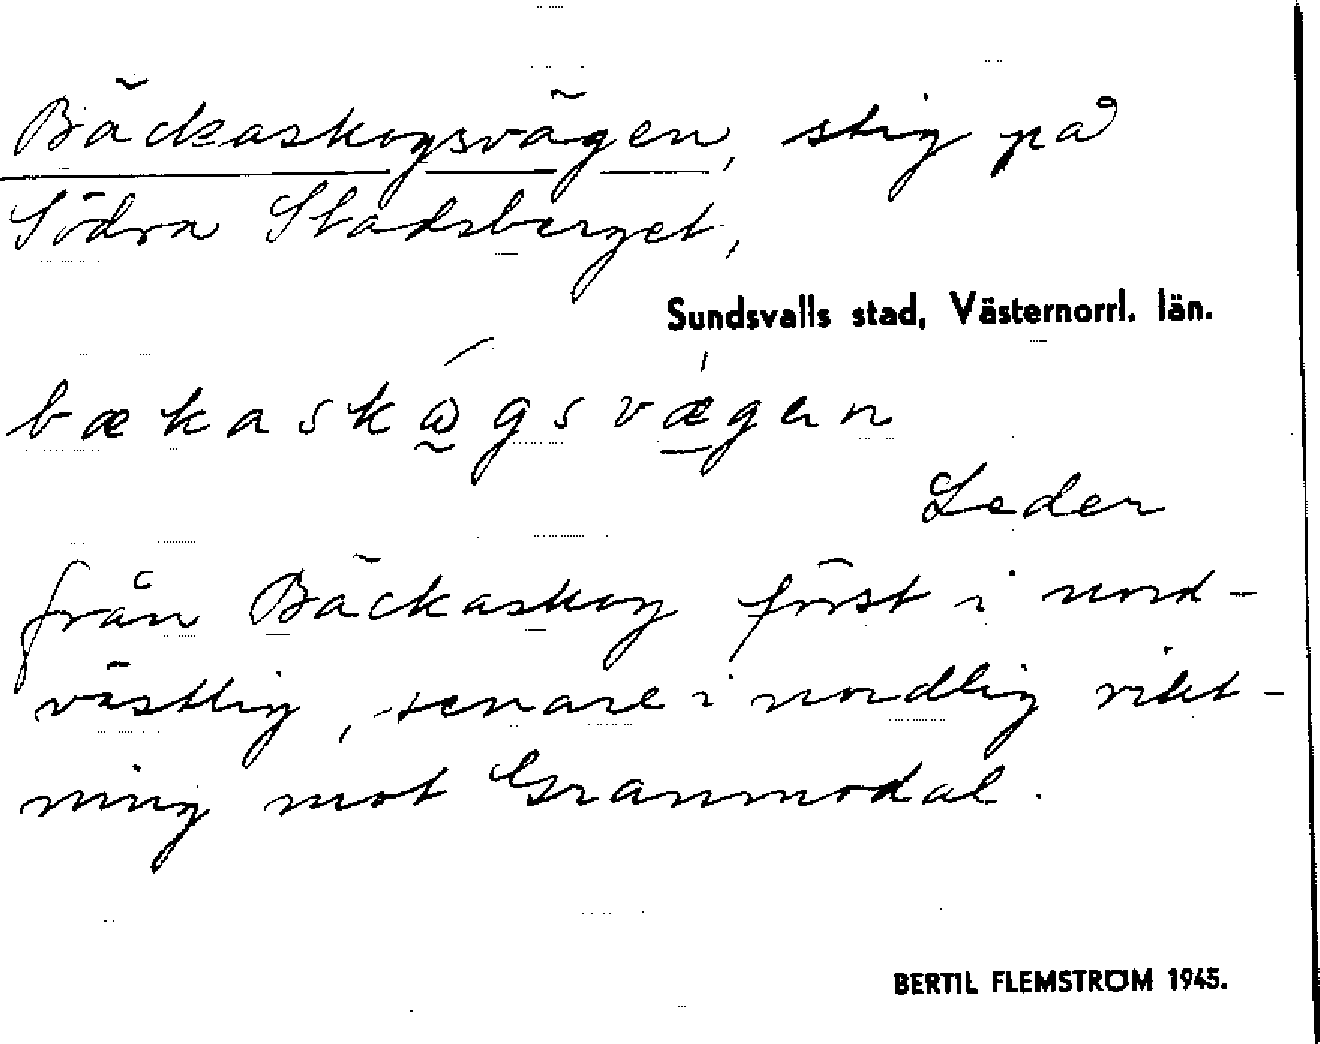 Bäckaskogsvägen, stig på
Södra Stadsberget,
Sundsvalls stad, Västernorrl. län.
bækaskɷ̰́gsvæ̠̍gen
Leder
från Bäckaskog först i nord-
västlig, senare i nordlig rikt-
ning mot Granmodal.
BERTIL FLEMSTRÖM 1945.